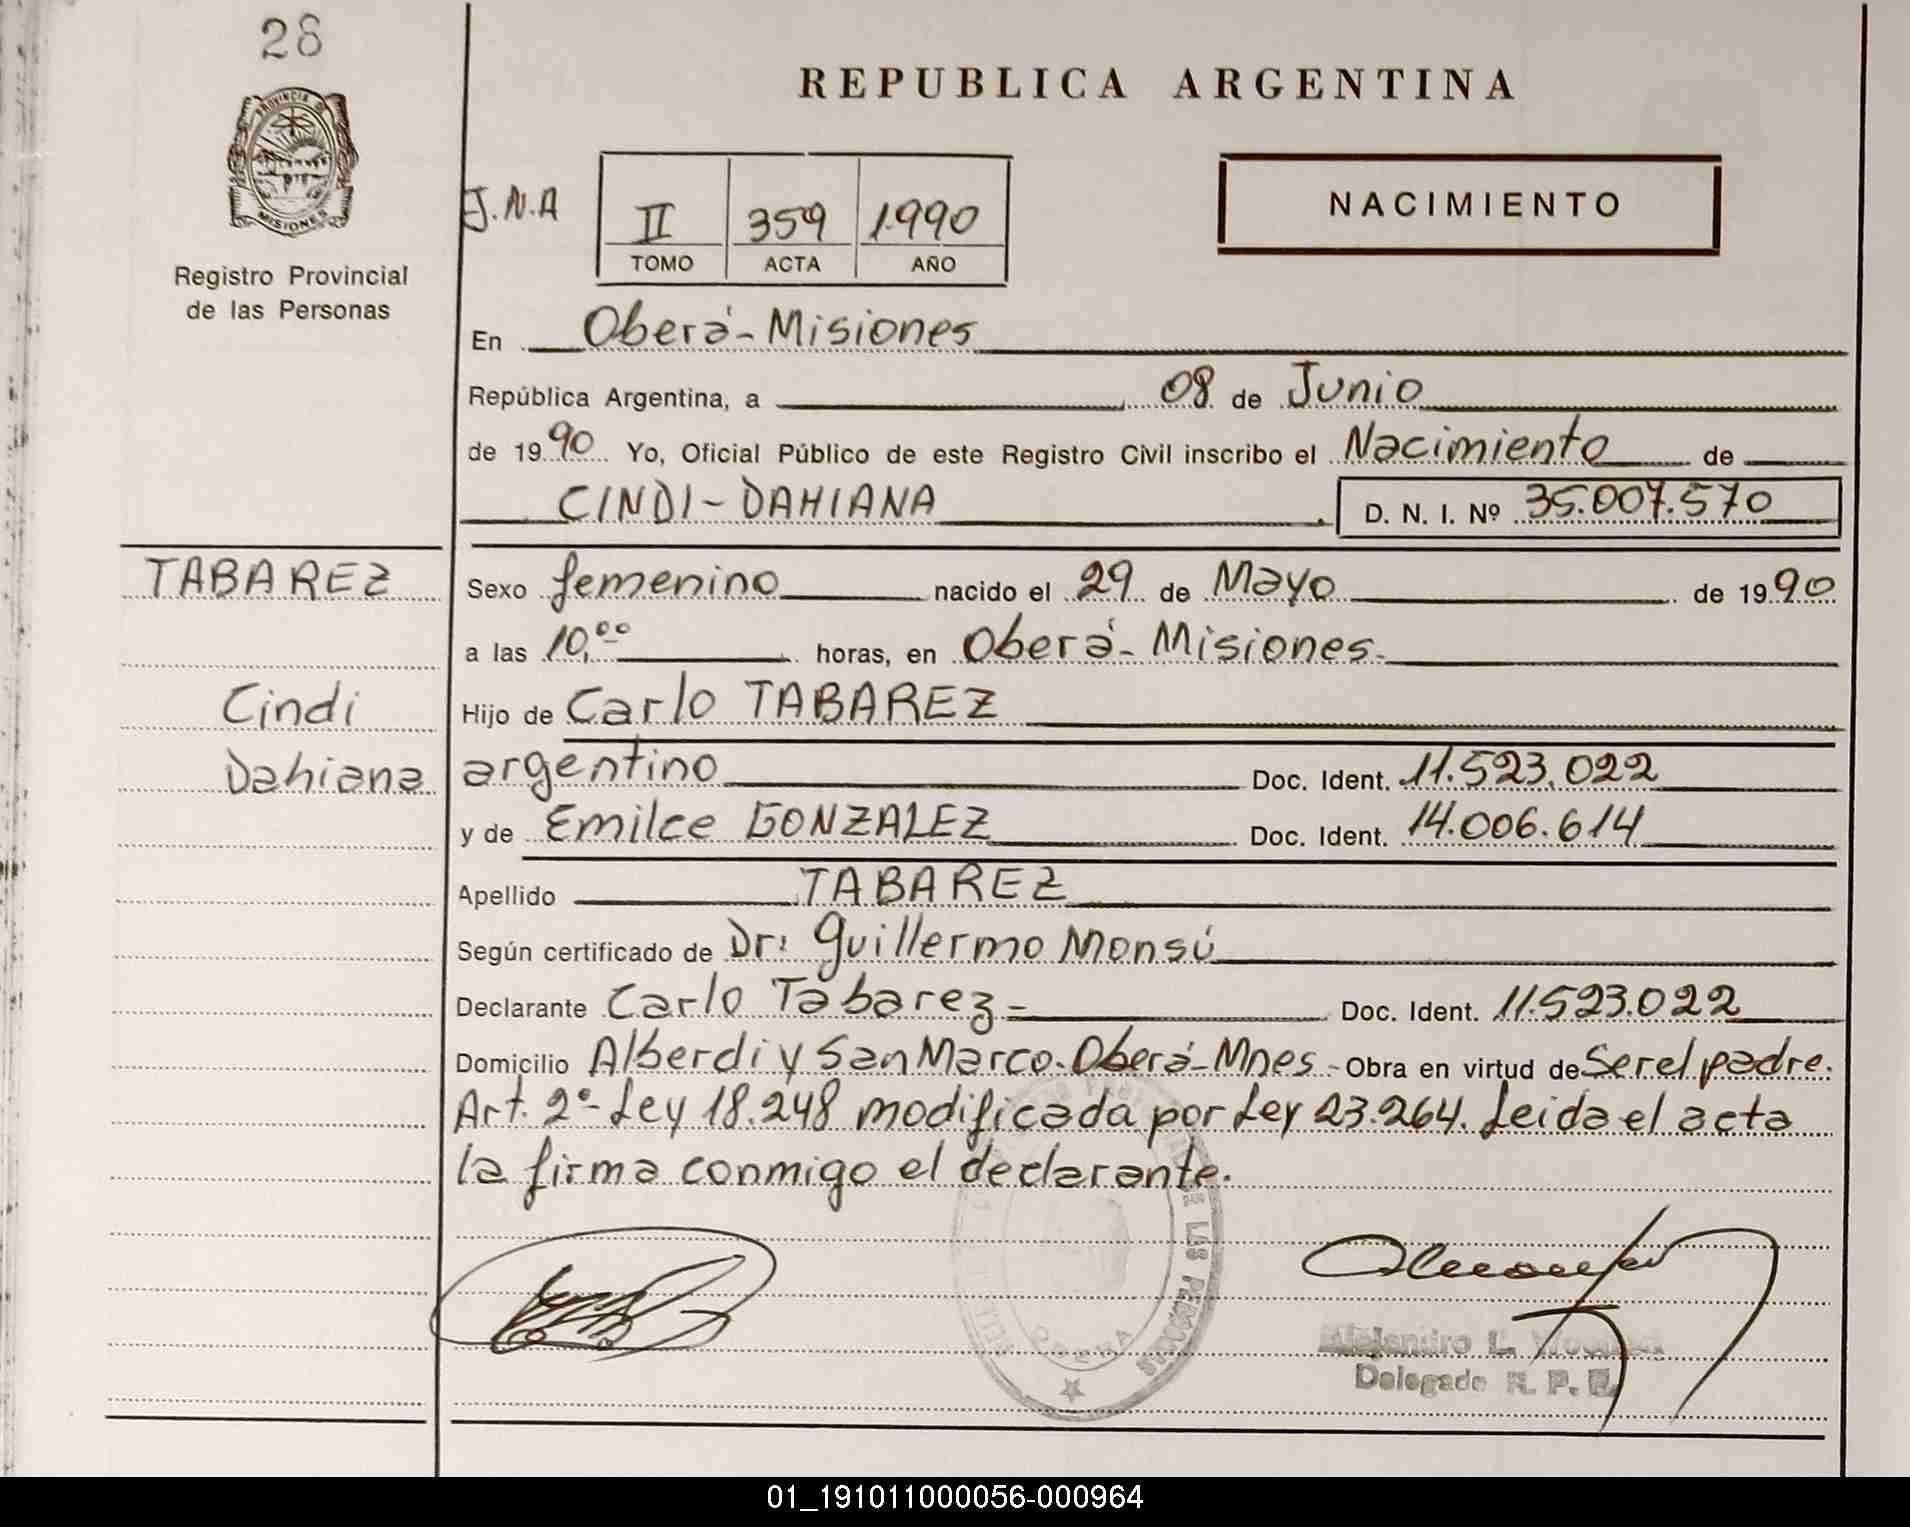 28
PROVINCIA D
MISIONES
Registro Provincial
de las Personas
REPUBLICA ARGENTINA
J.N.A
II 359 1990
TOMO ACTA AÑO
NACIMIENTO
En Oberá-Misiones
República Argentina, a 08 de Junio
de 1990 Yo, Oficial Público de este Registro Civil inscribo el Nacimiento de
CINDI-DAHIANA D. N. I. Nº 35.007.570
TABAREZ
Cindi
Dahiana
Sexo femenino nacido el 29 de Mayo de 1990
a las 10,00 horas, en Oberá-Misiones.
Hijo de Carlo TABAREZ
argentino Doc. Ident. 11.523.022
y de Emilce GONZALEZ Doc. Ident. 14.006.614
Apellido TABAREZ
Según certificado de Dr: Guillermo Monsú
Declarante Carlo Tabarez- Doc. Ident. 11.523.022
Domicilio Alberdi y San Marco-Oberá-Mnes.- Obra en virtud de Ser el padre.
Art. 2º-Ley 18.248 modificada por Ley 23.264. Leida el acta
la firma conmigo el declarante.
DE LAS PERSONAS
OBERA
Alejandro L.
Delegado R. P. P.
01_191011000056-000964